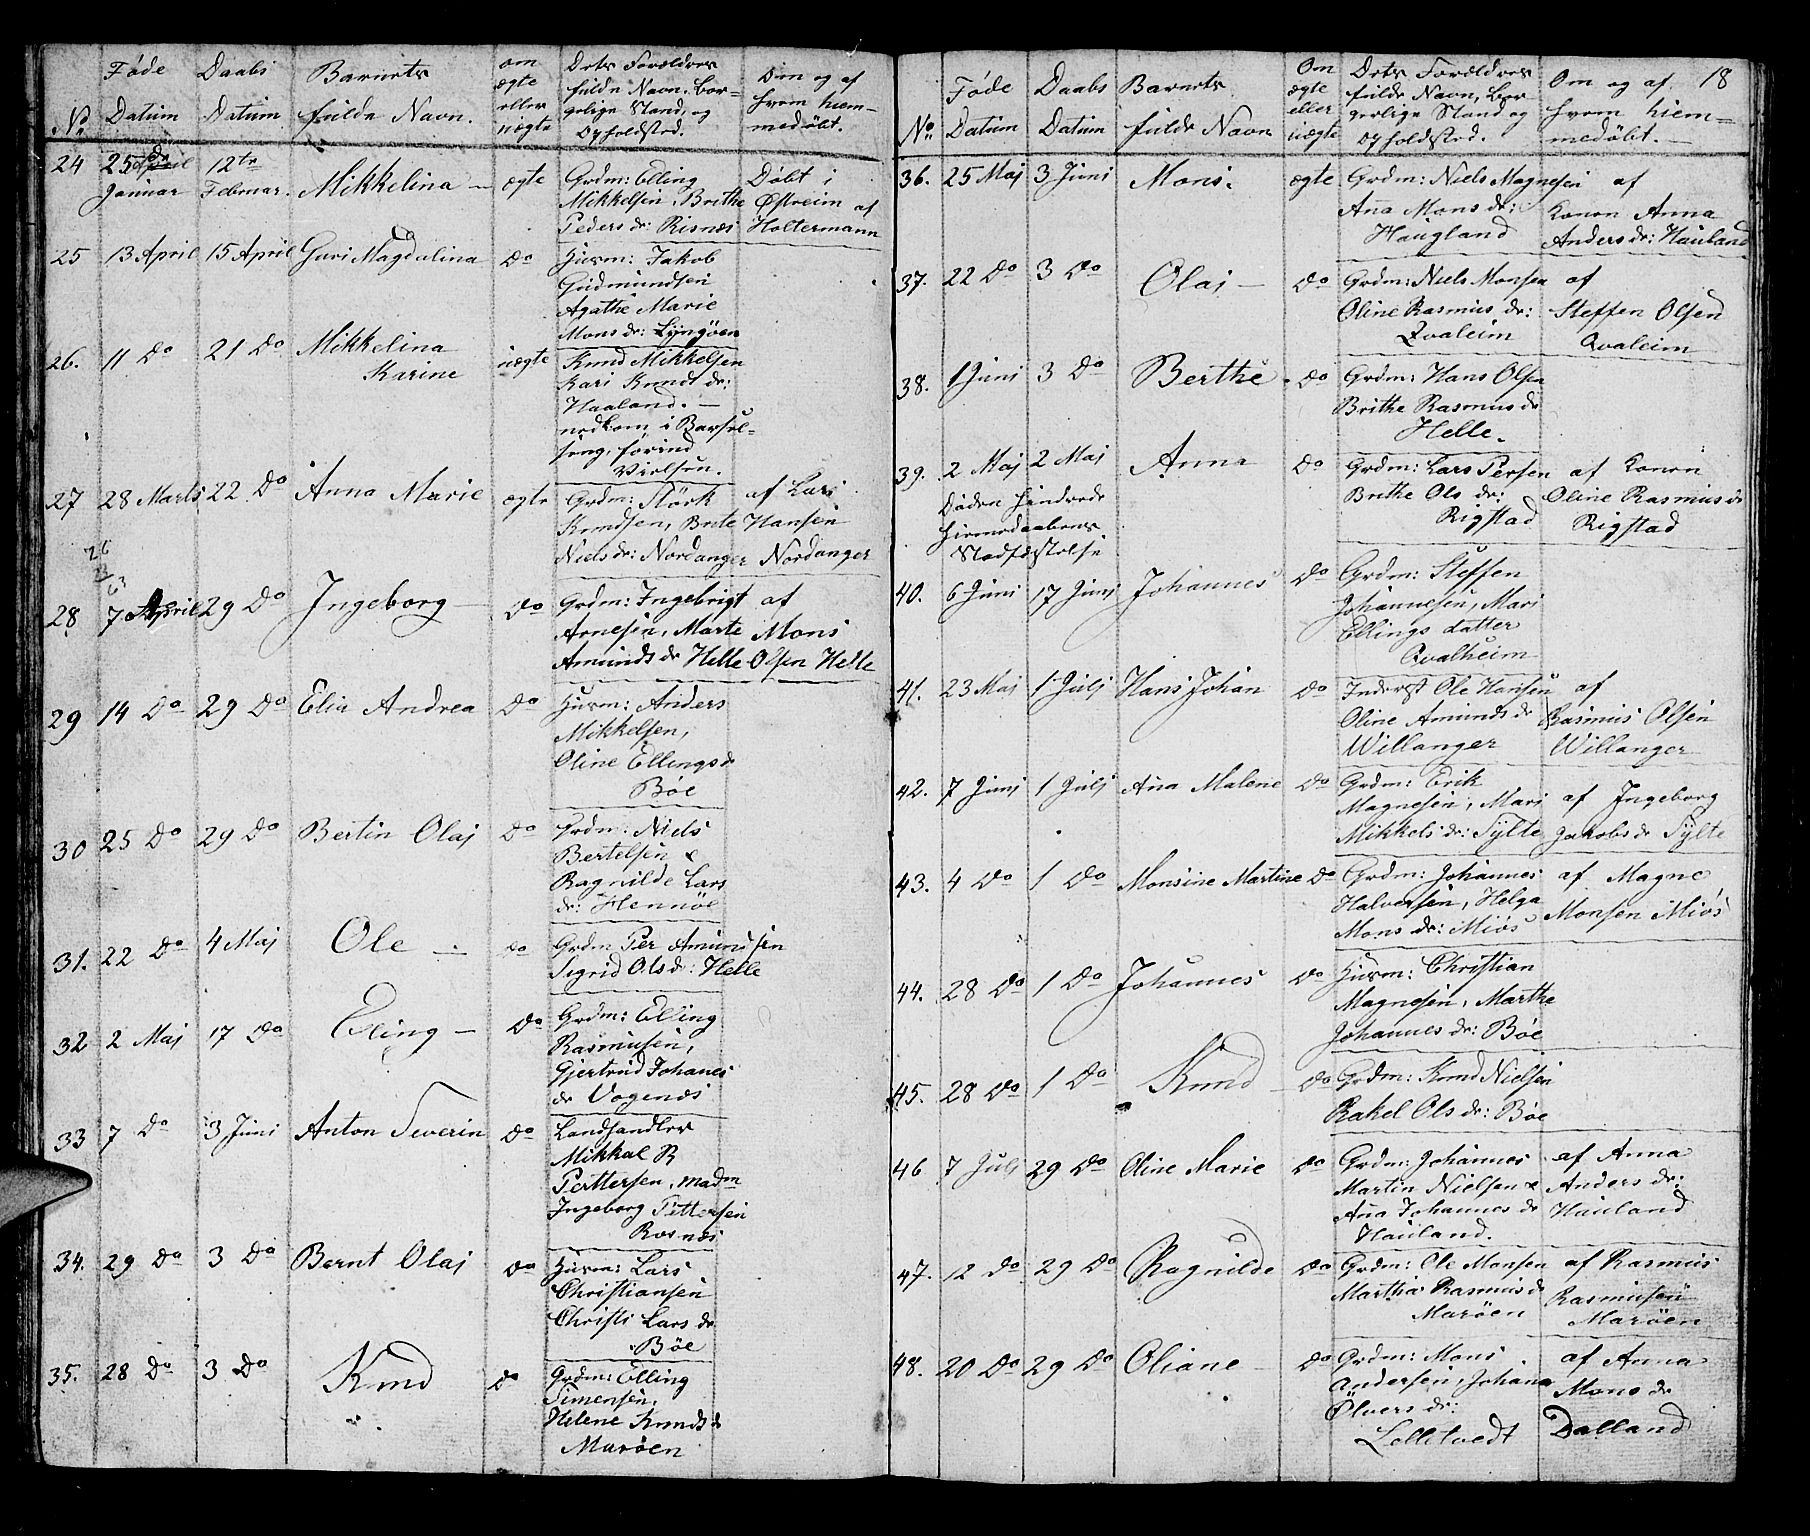 No. Føde Datum Daabs Datum Barnets fulde Navn. om ægte eller uægte Dets Forældres fulde Navn, borgerlige Stand, og Opholdsted. Om og af hvem hiemmedøbt.
24 25de Januar 12te Februar. Mikkelina — ægte Grdm: Elling Døbt i
Mikkelsen, Brithe Østreim af
Peders dr: Risnes Holtermann
25 13 April 15 April Guri Magdalina do Huusm: Jakob
Gudmundsen
Agathe Marie
Mons dr: Lyngöen
26. 11 do 21 do Mikkelina Karine uægte Knud Mikkelsen
Kari Knuds dr:
Haaland. —
nedkom i Barsel-
seng, förind
Vielsen.
27 28 Marts 22 do Anna Marie ægte Grdm: Störk af Lars
Knudsen, Brite Hansen
Niels dr: Nordanger Nordanger
26
13
63
28 7 April 29 do Ingeborg do Grdm: Ingebrigt af
Arnesen, Marte Mons
Amunds dr Helle Olsen Helle
29 14 do 29 do Elia Andrea do Huusm: Anders
Mikkelsen,
Oline Ellings dr
Böe
30 25 do 29 do Bertin Olaj do Grdm: Niels
Bertelsen &
Ragnilde Lars
dr: Hennöe
31. 22 do 4 Maj Ole — do Grdm Per Amunssen
Sigrid Ols dr: Helle
32 2 Maj 17 do Elling — do Grdm: Elling
Rasmusen,
Gjertrud Johanes
dr Vogenes
33 7 do 3 Juni Anton Severin do Landhandler
Mikkal R
Pettersen, madm
Ingeborg Pettersen
Risnes
34. 29 do 3 do Bernt Olaj do Huusm: Lars
Christiansen
Christi Lars dr
Böe
35. 28 do 3 do Knud do Grdm: Elling
Simensen,
Helene Knuds dr
Maröen
18
No. Føde Datum Daabs Datum Barnets fulde Navn Om ægte eller uægte Dets Forældres fulde Navn, borgerlige Stand og Opholdsted. Om og af hvem hiemmedøbt. —
36. 25 Maj 3 Juni Mons. ægte Grdm: Niels Magnesen af
Ana Mons dr: Konen Anna
Haugland Anders dr: Hauland
37. 22 do 3 do Olai — do Grdm: Niels Monsen af
Oline Rasmus dr: Steffen Olsen
Qvaleim Qvaleim
38. 1 Juni 3 do Berthe do Grdm: Hans Olsen
Brithe Rasmus dr
Helle.
39. 2 Maj 2 Maj Anna do Grdm: Lars Persen af Konen
Döden hindrede Brithe Ols dr: Oline Rasmus dr
hiemedaabens Rigstad Rigstad
Stadfæstelse
40. 6 Juni 17 Juni Johannes do Grdm: Steffen
Johannesen, Mari
Ellings datter
Qvalheim
41. 23 Maj 1 Julj Hans Johan do Inderst Ole Hansen af
Oline Amunds dr Rasmus Olsen
Willanger Willanger
42. 7 Junj 1 Julj Ana Malene do Grdm: Erik
Magnesen, Mari af Ingeborg
Mikkels dr: Sylte Jakobs dr Sylte
43. 4 do 1 do Monsine Martine do Grdm: Johannes af Magne
Halvorsen, Helga Monsen Miös
Mons dr: Miös
44. 28 do 1 do Johannes do Huusm: Christian
Magnesen, Marthe
Johannes dr: Böe
45. 28 do 1 do Knud — do Grdm: Knud Nielsen
Rakel Ols dr: Böe
46 7 Julj 29 do Oline Marie do Grdm: Johannes af Anna
Martin Nielsen & Anders dr:
Ana Johannes dr Hauland
Hauland.
47. 12 do 29 do Ragnilde do Grdm: Ole Monsen af Rasmus
Martha Rasmus dr Rasmusen
Maröen Maröen
48. 20 do 29 do Oliane do Grdm: Mons af Anna
Andersen, Johana Mons dr
Ölvers dr: Dalland
Lelletvedt